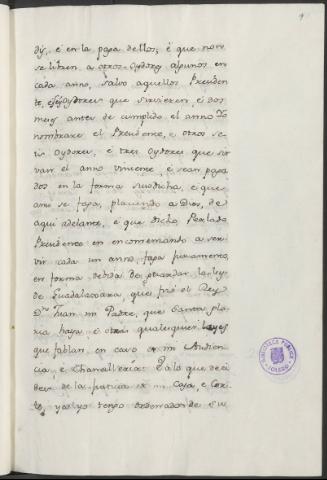 9
dis, é en la paga dellos, é que non
se libren a otros Oydores algunos en
cada anno, salvo aquellos Presiden
te, é Oydores que sirvieren, é dos
meses antes de cumplido el anno Yo
nombrare el Presidente, e otros se-
is Oydores, é tres Oydores que sir
van el anno viniente, é sean paga
dos en la forma susodicha, é que
ansi se faga, placiendo a Dios, de
aqui adelante, é que dicho Perlado
Presidente en comenzando a ser-
vir cada un anno, faga juramento
en forma debida de guardar la ley
de Guadalaxara, que fizó el Rey
Dn Juan mi Padre, que Santa glo
ria haya, é otras qualesquier leyes
que fablan en caso de mi Audien
cia, e Chancilleria: Ya lo que decí
des de la justicia de mi Casa, e Cor-
te, ya yo tengo ordenado de su
BIBLIOTECA PUBLICA
TOLEDO